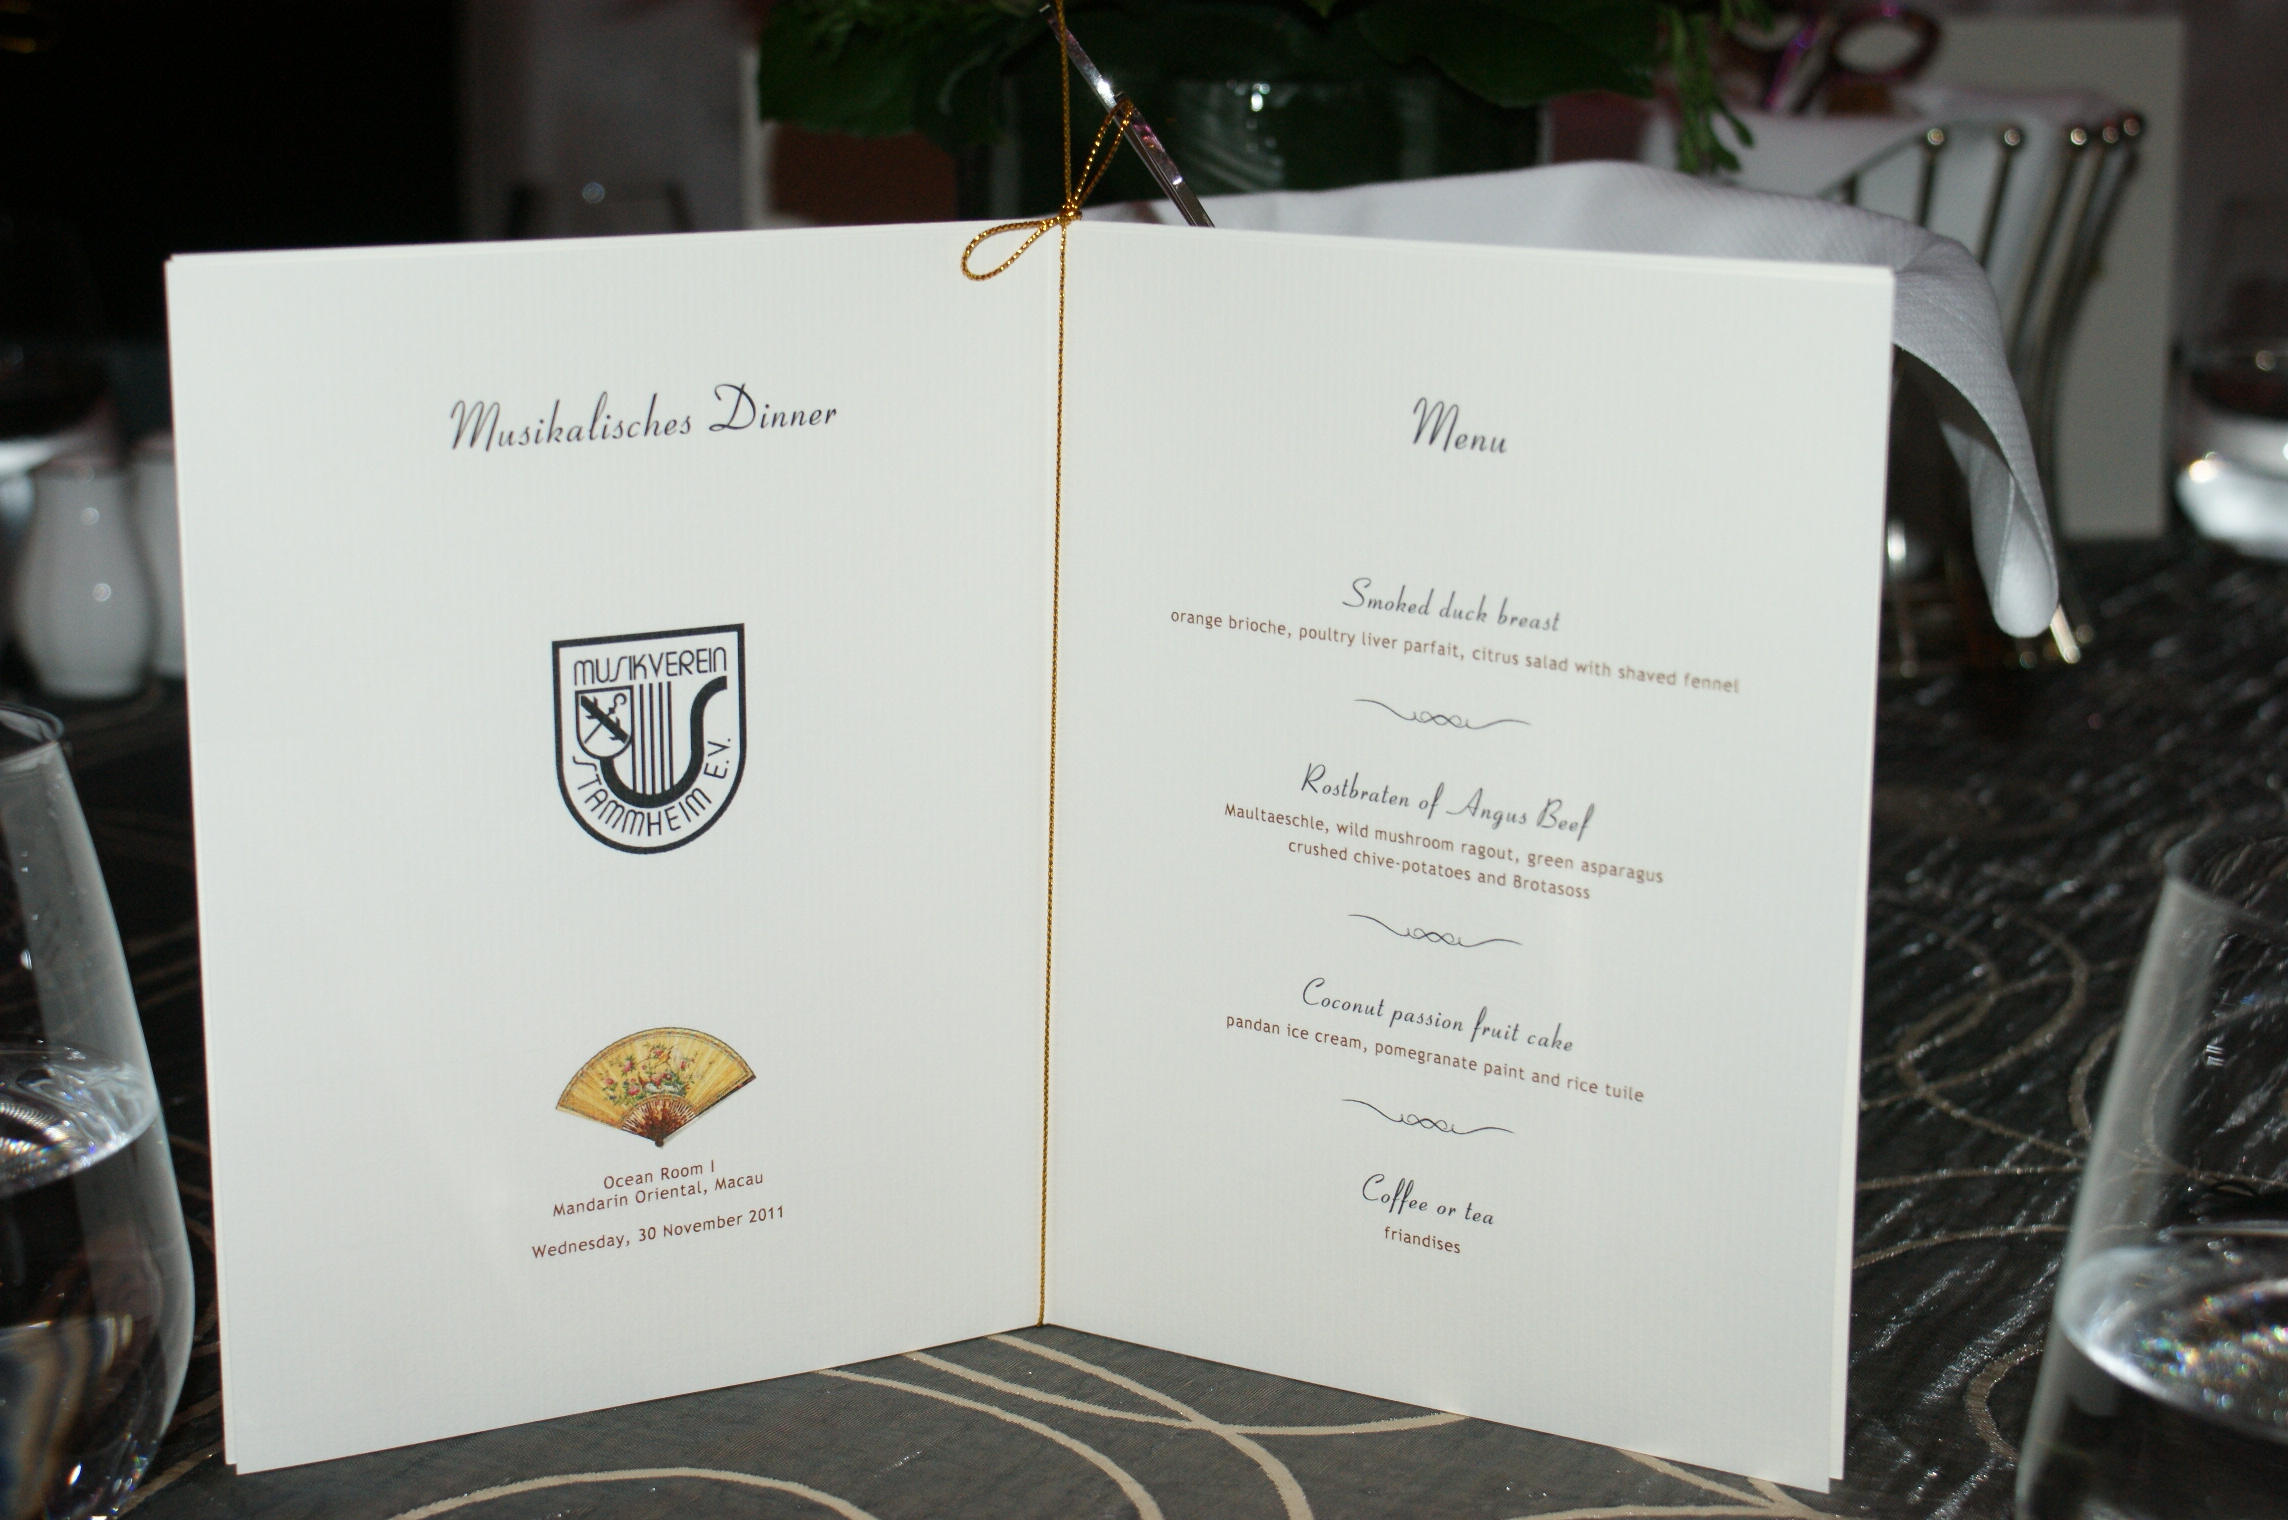 Musikalisches Dinner
MUSIKVEREIN
STAMMHEIM E.V.
Ocean Room I
Mandarin Oriental, Macau
Wednesday, 30 November 2011
Menu
Smoked duck breast
orange brioche, poultry liver parfait, citrus salad with shaved fennel
Rostbraten of Angus Beef
Maultaeschle, wild mushroom ragout, green asparagus
crushed chive-potatoes and Brotasoss
Coconut passion fruit cake
pandan ice cream, pomegranate paint and rice tuile
Coffee or tea
friandises